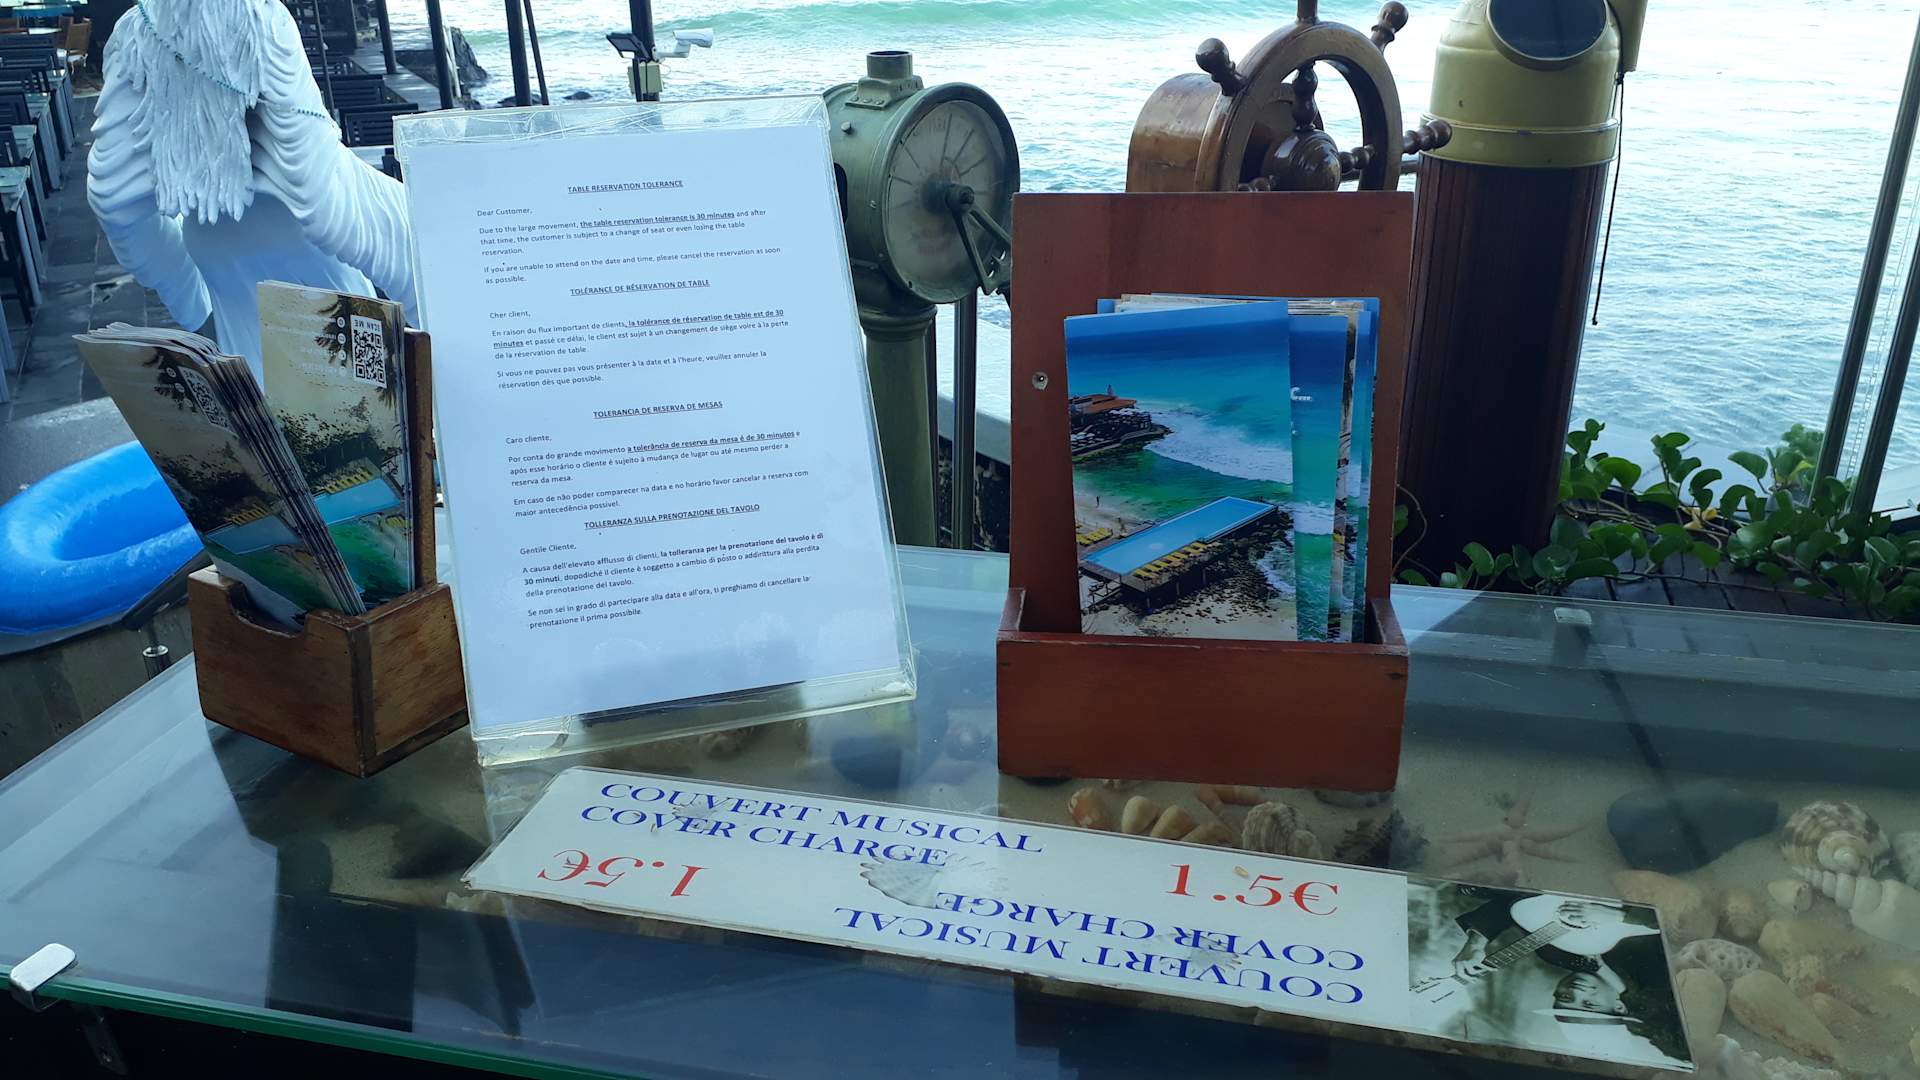 TABLE RESERVATION TOLERANCE
Dear Customer,
Due to the large movement, the table reservation tolerance is 30 minutes and after
that time, the customer is subject to a change of seat or even losing the table
reservation.
If you are unable to attend on the date and time, please cancel the reservation as soon
as possible.
TOLÉRANCE DE RÉSERVATION DE TABLE
Cher client,
En raison du flux important de clients, la tolérance de réservation de table est de 30
minutes et passé ce délai, le client est sujet à un changement de siège voire à la perte
de la réservation de table.
Si vous ne pouvez pas vous présenter à la date et à l'heure, veuillez annuler la
réservation dès que possible.
TOLERANCIA DE RESERVA DE MESAS
Caro cliente,
Por conta do grande movimento a tolerância de reserva da mesa é de 30 minutos e
após esse horário o cliente é sujeito à mudança de lugar ou até mesmo perder a
reserva da mesa.
Em caso de não poder comparecer na data e no horário favor cancelar a reserva com
maior antecedência possível.
TOLLERANZA SULLA PRENOTAZIONE DEL TAVOLO
Gentile Cliente,
A causa dell'elevato afflusso di clienti, la tolleranza per la prenotazione del tavolo è di
30 minuti, dopodiché il cliente è soggetto a cambio di posto o addirittura alla perdita
della prenotazione del tavolo.
Se non sei in grado di partecipare alla data e all'ora, ti preghiamo di cancellare la
prenotazione il prima possibile.
SCAN ME
COUVERT MUSICAL
COVER CHARGE
1.5€
COUVERT MUSICAL
COVER CHARGE
1.5€